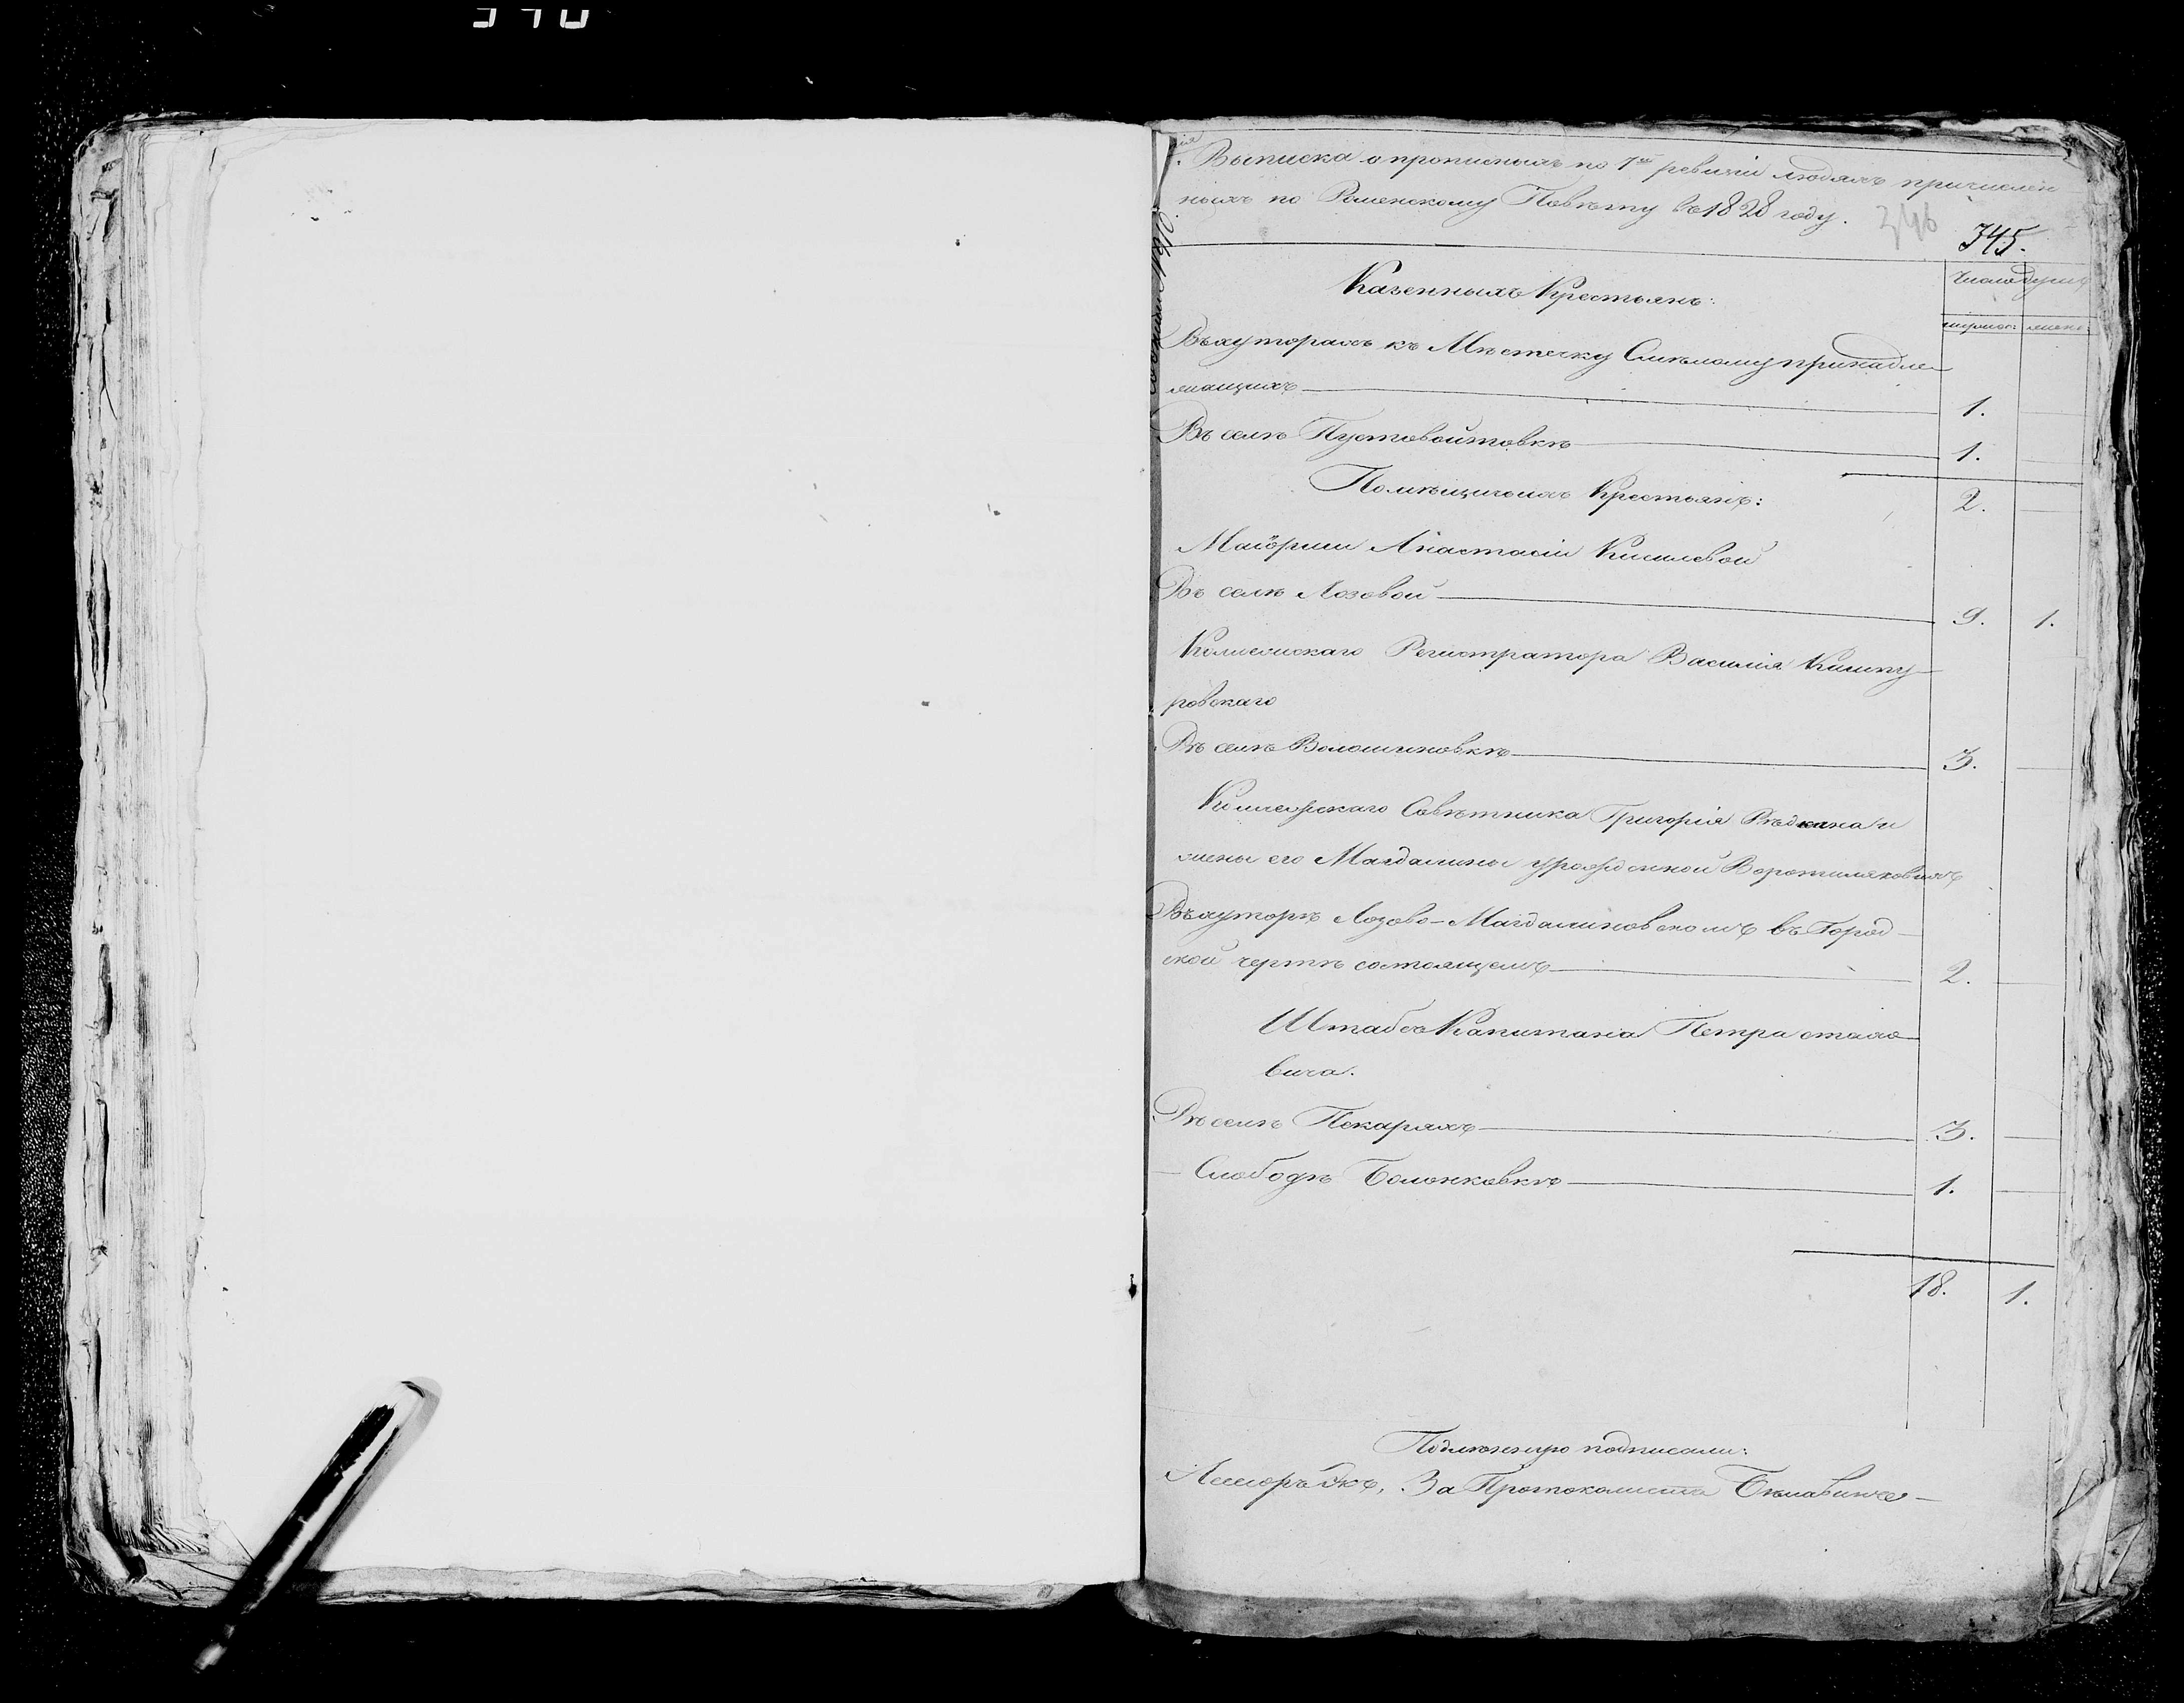 Выписка о прописныхъ по 7й ревизіи людяхъ причислен
ныхъ по Роменскому Повѣту въ 1828 году.
346
345.
Казенныхъ Крестьянъ:
Число душъ
мужес: женс:
Въ хуторахъ къ Мѣстечку Смѣлому принадле-
жащихъ 1.
Въ селѣ Пустовойтовкѣ 1.
2.
Помѣщичьихъ Крестьянъ:
Маіорши Анастасіи Киселевой
Въ селѣ Лозовой 9. 1.
Коллежскаго Регистратора Василія
ровскаго
Въ селѣ Волошиновкѣ 3.
Коллежскаго Совѣтника Григорія и
жены его Магдалины урожденной
Въ хуторѣ Лозово-Магдалиновскомъ въ Город-
ской чертѣ состоящемъ 2.
Штабсъ Капитана Петра
вича.
Въ селѣ Пекаряхъ 3.
— Слободѣ Беленковкѣ 1.
18. 1.
Подлинную подписали:
За Протоколиста